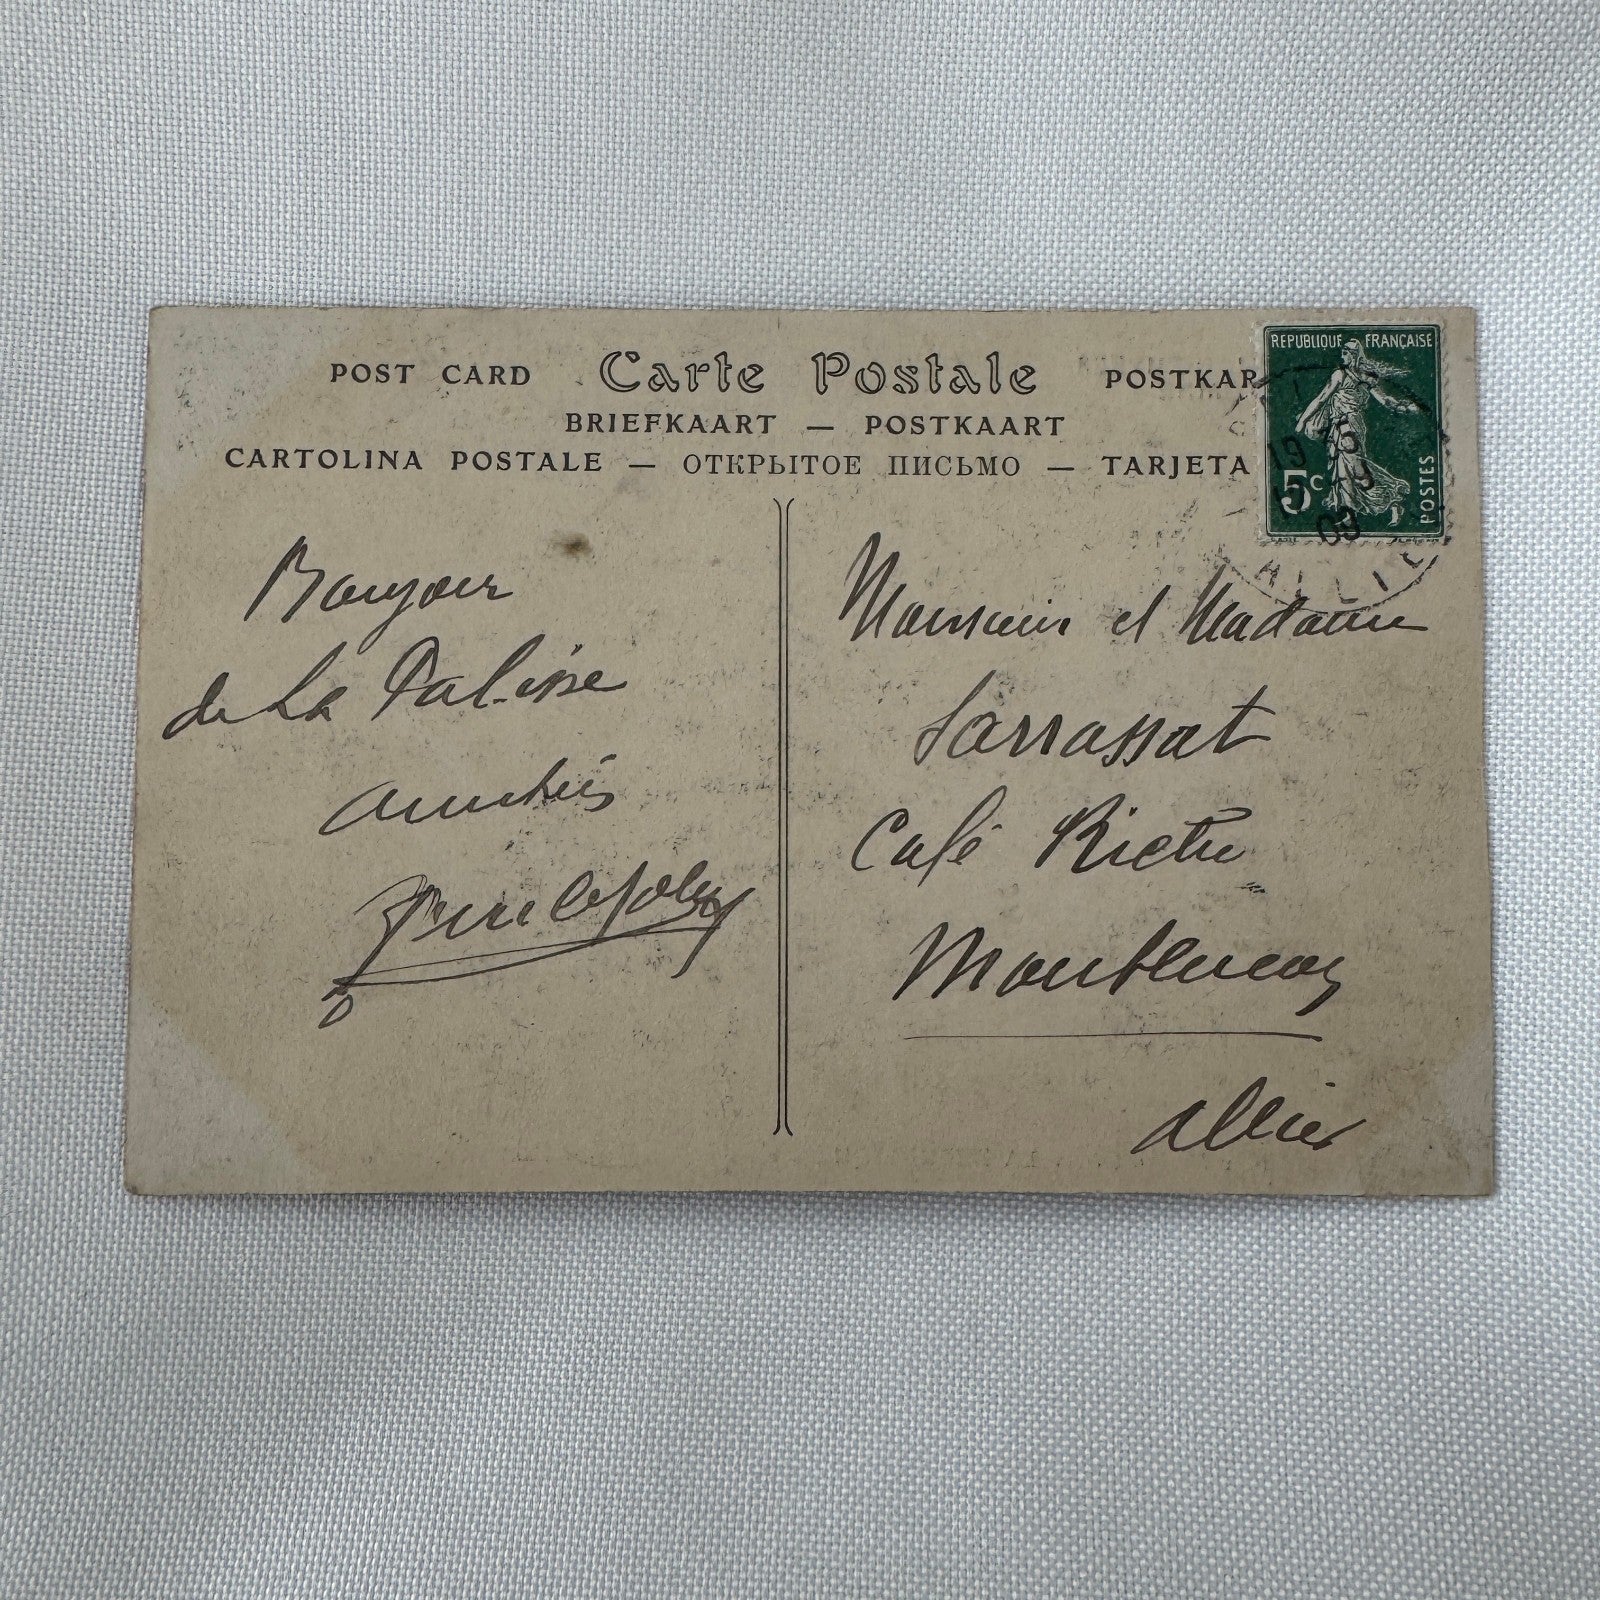 POST CARD Carte Postale POSTKAR
BRIEFKAART — POSTKAART
CARTOLINA POSTALE — ОТКРЫТОЕ ПИСЬМО — TARJETA
REPUBLIQUE FRANÇAISE
5c
POSTES
19 35
17 -9
09
ALLIE
Bonjour
de La Palisse
amitiés
Monsieur et Madame
Sarrassat
Café
Montluçon
Allier